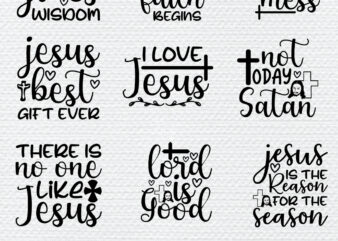 WISDOM
faith
BEGINS
mess
jesus
best
GIFT EVER
I LOVE
Jesus
not
TODAY
Satan
THERE IS
NO ONE
LIKE
Jesus
lord
is
Good
jesus
IS THE
Reason
FOR THE
season